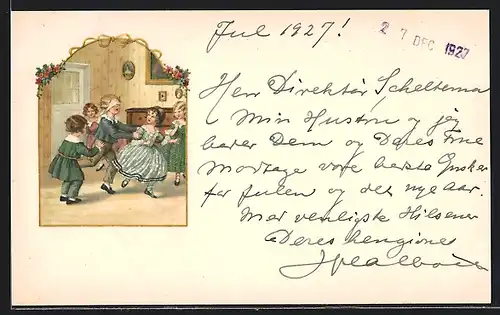 Jul 1927!
2 7 DEC 1927
Herr Direktør Scheltema
Min Hustru og jeg
beder Dem og Deres Frue
modtage vore bedste Ønsker
for Julen og det nye Aar.
Med venligste Hilsener
Deres hengivne